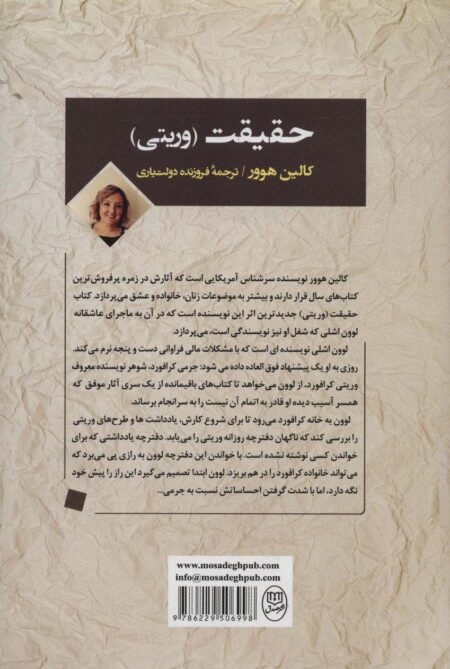 حقیقت (وریتی)
کالین هوور / ترجمهٔ فروزنده دولت‌یاری
کالین هوور نویسنده سرشناس آمریکایی است که آثارش در زمره پرفروش‌ترین
کتاب‌های سال قرار دارند و بیشتر به موضوعات زنان، خانواده و عشق می‌پردازد. کتاب
حقیقت (وریتی) جدیدترین اثر این نویسنده است که در آن به ماجرای عاشقانه
لوون اشلی که شغل او نیز نویسندگی است، می‌پردازد.
لوون اشلی نویسنده ای است که با مشکلات مالی فراوانی دست و پنجه نرم می‌کند.
روزی به او یک پیشنهاد فوق العاده داده می شود: جرمی کرافورد، شوهر نویسنده معروف
وریتی کرافورد، از لوون می‌خواهد تا کتاب‌های باقیمانده از یک سری آثار موفق که
همسر آسیب دیده او قادر به اتمام آن نیست را به سرانجام برساند.
لوون به خانه کرافورد می‌رود تا برای شروع کارش، یادداشت ها و طرح‌های وریتی
را بررسی کند که ناگهان دفترچه روزانه وریتی را می‌یابد. دفترچه یادداشتی که برای
خواندن کسی نوشته نشده است. با خواندن این دفترچه لوون به رازی پی می‌برد که
می‌تواند خانواده کرافورد را در هم بریزد. لوون ابتدا تصمیم می‌گیرد این راز را پیش خود
نگه دارد، اما با شدت گرفتن احساساتش نسبت به جرمی...
www.mosadeghpub.com
info@mosadeghpub.com
9 786229 506998